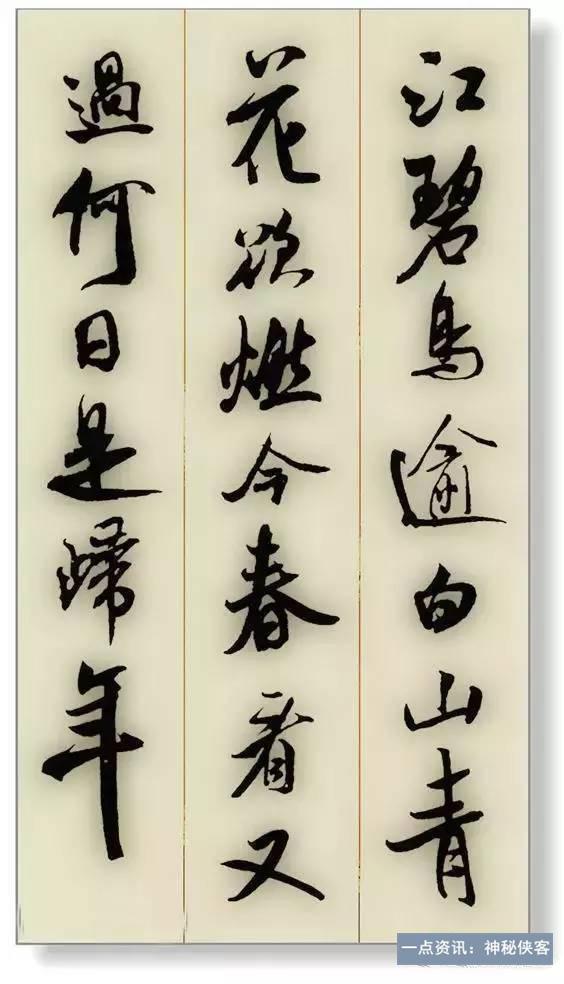 江碧鳥逾白山青
花欲燃今春看又
過何日是歸年
一点资讯：神秘侠客